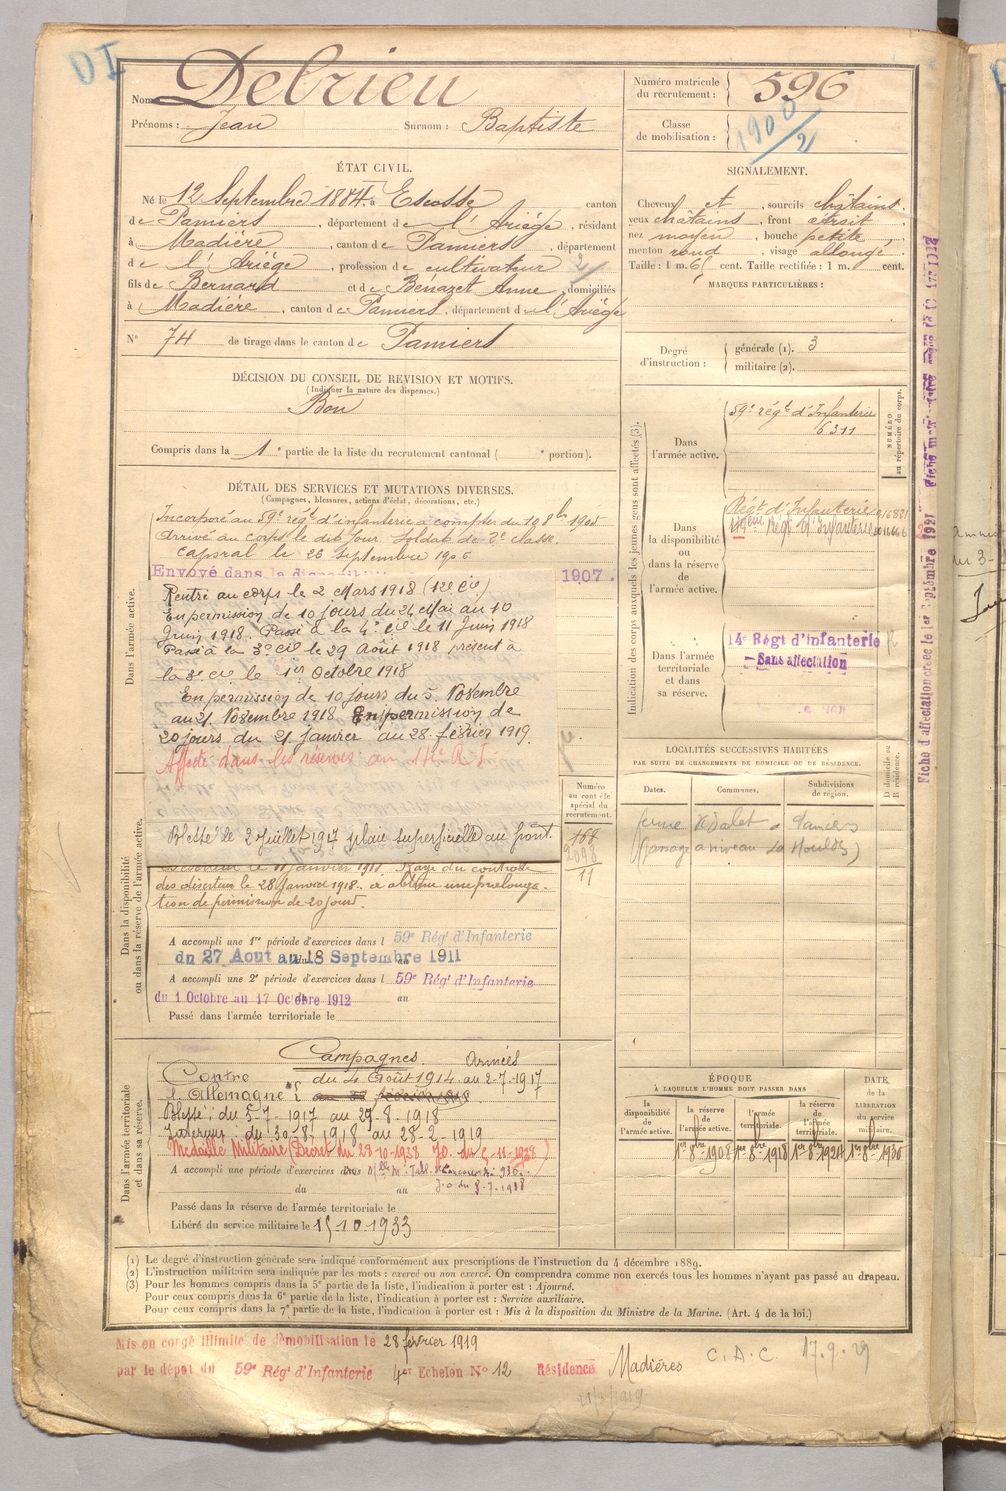 DI
Nom Delrieu
Prénoms : Jean Surnom : Baptiste
Numéro matricule du recrutement : 596
Classe de mobilisation : 1900/2
ÉTAT CIVIL.
Né le 12 Septembre 1884 à Escosse canton
de Pamiers, département de l'Ariège, résidant
à Madière, canton de Pamiers, département
de l'Ariège, profession de cultivateur
fils de Bernard et de Benazet Anne, domiciliés
à Madière, canton de Pamiers, département de l'Ariège
N° 74 de tirage dans le canton de Pamiers
SIGNALEMENT.
Cheveux et, sourcils châtains.
yeux châtains, front étroit
nez moyen, bouche petite
menton rond, visage allongé
Taille : 1 m. 6 cent. Taille rectifiée : 1 m. cent.
MARQUES PARTICULIÈRES :
Degré d'instruction : générale (1). 3
militaire (2).
DÉCISION DU CONSEIL DE REVISION ET MOTIFS.
(Indiquer la nature des dispenses.)
Bon
Compris dans la 1e partie de la liste du recrutement cantonal ( e portion).
DÉTAIL DES SERVICES ET MUTATIONS DIVERSES.
(Campagnes, blessures, actions d'éclat, décorations, etc.)
Dans l'armée active.
Incorporé au 59e régt d'infanterie à compter du 10 8bre 1905
Arrivé au corps le dit jour Soldat de 2e classe.
Caporal le 25 Septembre 1906
Envoyé dans la 1907.
Rentré au corps le 2 Mars 1918 (12e Cie)
En permission de 10 jours du 24 Mai au 10
Juin 1918. Passé à la 4e Cie le 11 Juin 1918
Passé à la 3e Cie le 29 Août 1918 présent à
la 3e cie le 1er Octobre 1918
En permission de 10 jours du 5 Novembre
au 21 Novembre 1918 En permission de
20 jours du 21 janvier au 28 février 1919.
Affecté dans les réserves au 14e R.I.
Dans la disponibilité ou dans la réserve de l'armée active.
Blessé le 2 Juillet 1917 plaie superficielle au front.
11 Janvier 1918. Rayé du contrôle
des déserteurs le 28 Janvier 1918. a obtenu une prolonga-
tion de permission de 20 jours.
A accompli une 1re période d'exercices dans l 59e Régt d'Infanterie
du 27 Aout au 18 Septembre 1911
A accompli une 2e période d'exercices dans l 59e Régt d'Infanterie
du 1 Octobre au 17 Octobre 1912 au
Passé dans l'armée territoriale le
Numéro au contrôle spécial du recrutement.
168
2098
11
Dans l'armée territoriale et dans sa réserve.
Campagnes. Armées
Contre l'Allemagne du 4 Août 1914 au 2-7-1917
Blessé : du 5-7-1917 au 29-8-1918
Intérieur : du 30-8-1918 au 28-2-1919
Médaille Militaire (Décret du 28-10-1938 JO. du 5-11-1938)
A accompli une période d'exercices
J.O du 8-7-1938
du au
Passé dans la réserve de l'armée territoriale le
Libéré du service militaire le 15-10-1933
Indication des corps auxquels les jeunes gens sont affectés (3).
NUMÉRO au répertoire du corps.
Dans l'armée active.
59e régt d'Infanterie
6311
Dans la disponibilité ou dans la réserve de l'armée active.
Régt d'Infanterie
Régt d'Infanterie
Dans l'armée territoriale et dans sa réserve.
14e Régt d'infanterie
Sans affectation
LOCALITÉS SUCCESSIVES HABITÉES
PAR SUITE DE CHANGEMENTS DE DOMICILE OU DE RÉSIDENCE.
Dates. Communes. Subdivisions de région. D domicile ou R résidence.
Pamiers
(passage à niveau)
ÉPOQUE
À LAQUELLE L'HOMME DOIT PASSER DANS
la disponibilité de l'armée active. la réserve de l'armée active. l'armée territoriale. la réserve de l'armée territoriale. DATE de la LIBÉRATION du service militaire.
1er 8bre 1908 1er 8bre 1918 1er 8bre 1924 1er 8bre 1930
(1) Le degré d'instruction générale sera indiqué conformément aux prescriptions de l'instruction du 4 décembre 1889.
(2) L'instruction militaire sera indiquée par les mots : exercé ou non exercé. On comprendra comme non exercés tous les hommes n'ayant pas passé au drapeau.
(3) Pour les hommes compris dans la 5e partie de la liste, l'indication à porter est : Ajourné.
Pour ceux compris dans la 6e partie de la liste, l'indication à porter est : Service auxiliaire.
Pour ceux compris dans la 7e partie de la liste, l'indication à porter est : Mis à la disposition du Ministre de la Marine. (Art. 4 de la loi.)
Mis en congé illimité de démobilisation le 28 février 1919
par le dépot du 59e Régt d'Infanterie 4er Echelon N° 12 Résidence Madières
C.A.C. 17.9.29
Fiche d'affectation créée le 1er Septembre 1921